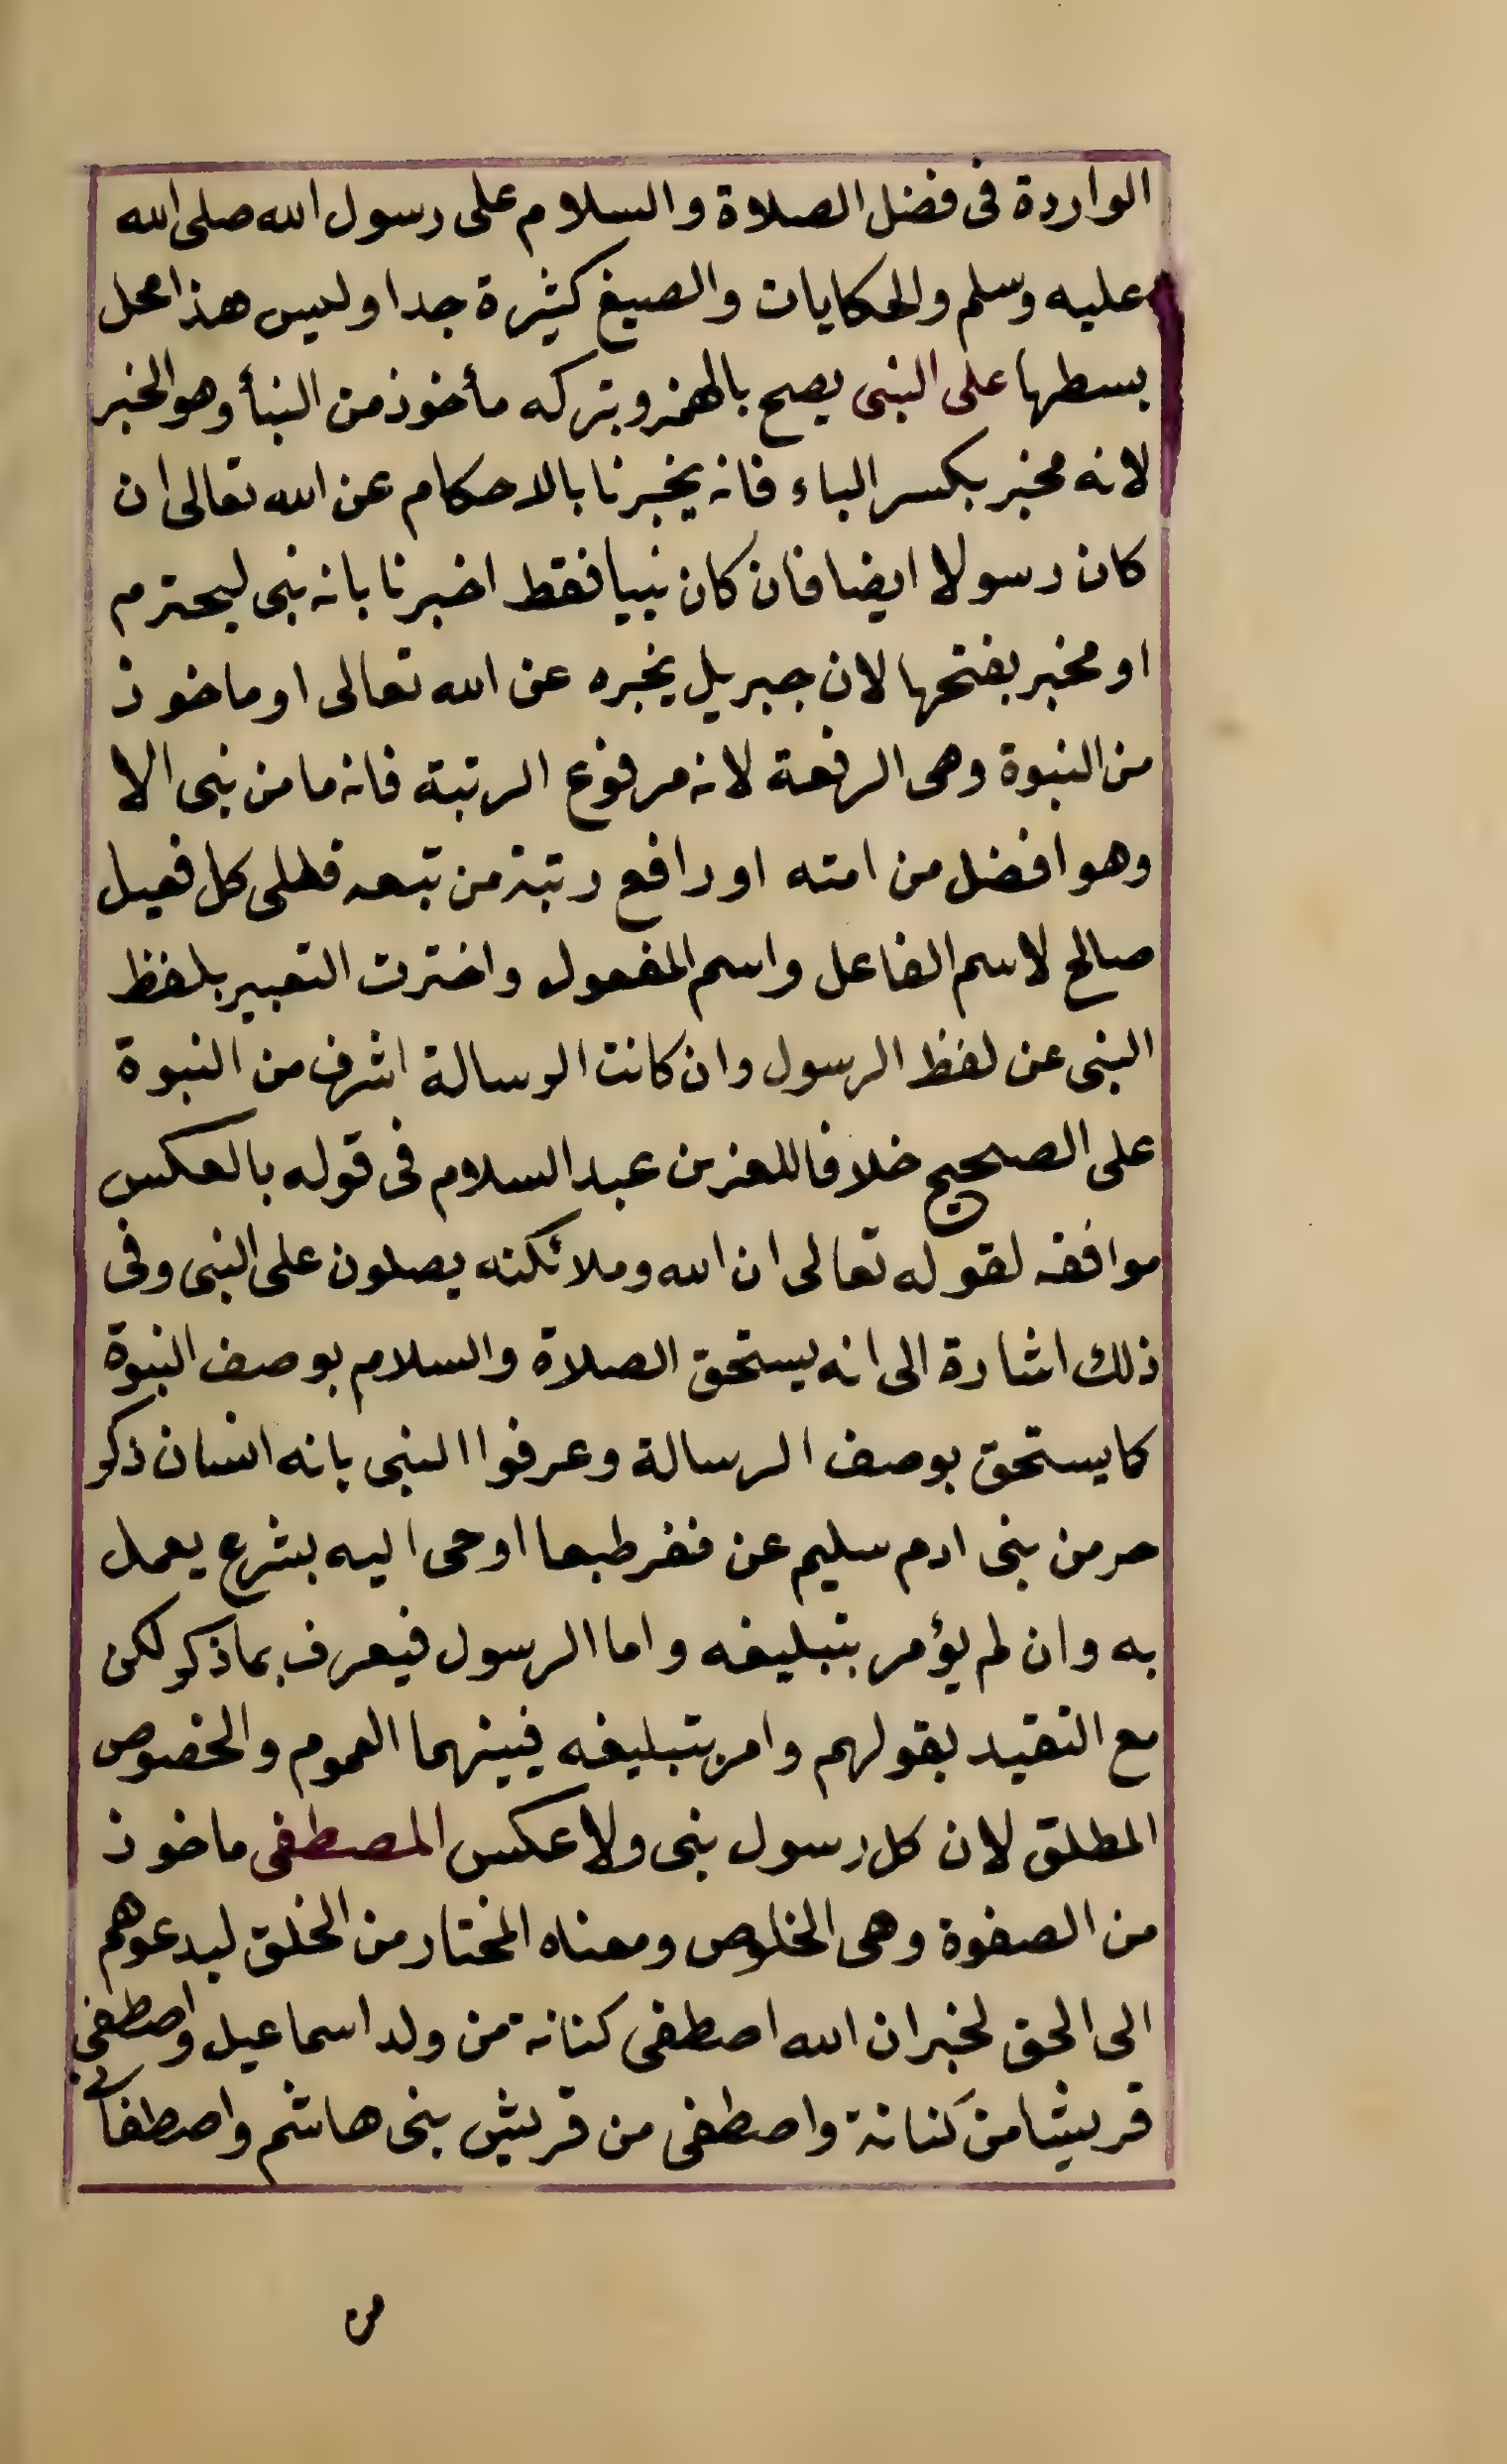 الواردة فى فضل الصلاة والسلام على رسول الله صلى الله
عليه وسلم والحكايات والصيغ كثيرة جدا وليس هذا محل
بسطها على النبى يصح بالهمز وبتركه مأخوذ من النبأ وهو الخبر
لانه مخبر بكسر الباء فانه يخبرنا بالاحكام عن الله تعالى ان
كان رسولا ايضا فان كان نبيا فقط اخبرنا بانه نبى ليحترم
او مخبر بفتحها لان جبريل يخبره عن الله تعالى او ماخوذ
من النبوة وهى الرفعة لانه مرفوع الرتبة فانه ما من نبى الا
وهو افضل من امته او رافع رتبة من تبعه فعلى كل فعيل
صالح لاسم الفاعل واسم المفعول واخترت التعبير بلفظ
النبى عن لفظ الرسول وان كانت الرسالة اشرف من النبوة
على الصحيح خلافا للعز بن عبد السلام فى قوله بالعكس
موافقه لقوله تعالى ان الله وملائكته يصلون على النبى وفى
ذلك اشارة الى انه يستحق الصلاة والسلام بوصف النبوة
كما يستحق بوصف الرسالة وعرفوا النبى بانه انسان ذكر
حر من بنى ادم سليم عن منفر طبعا اوحى اليه بشرع يعمل
به وان لم يؤمر بتبليغه واما الرسول فيعرف بما ذكر لكن
مع التقيد بقولهم وامر بتبليغه فبينهما العموم والخصوص
المطلق لان كل رسول نبى ولا عكس المصطفى ماخوذ
من الصفوة وهى الخلوص ومعناه المختار من الخلق ليدعوهم
الى الحق لخبر ان الله اصطفى كنانة من ولد اسماعيل واصطفى
قريشا من كنانة واصطفى من قريش بنى هاشم واصطفانى
من